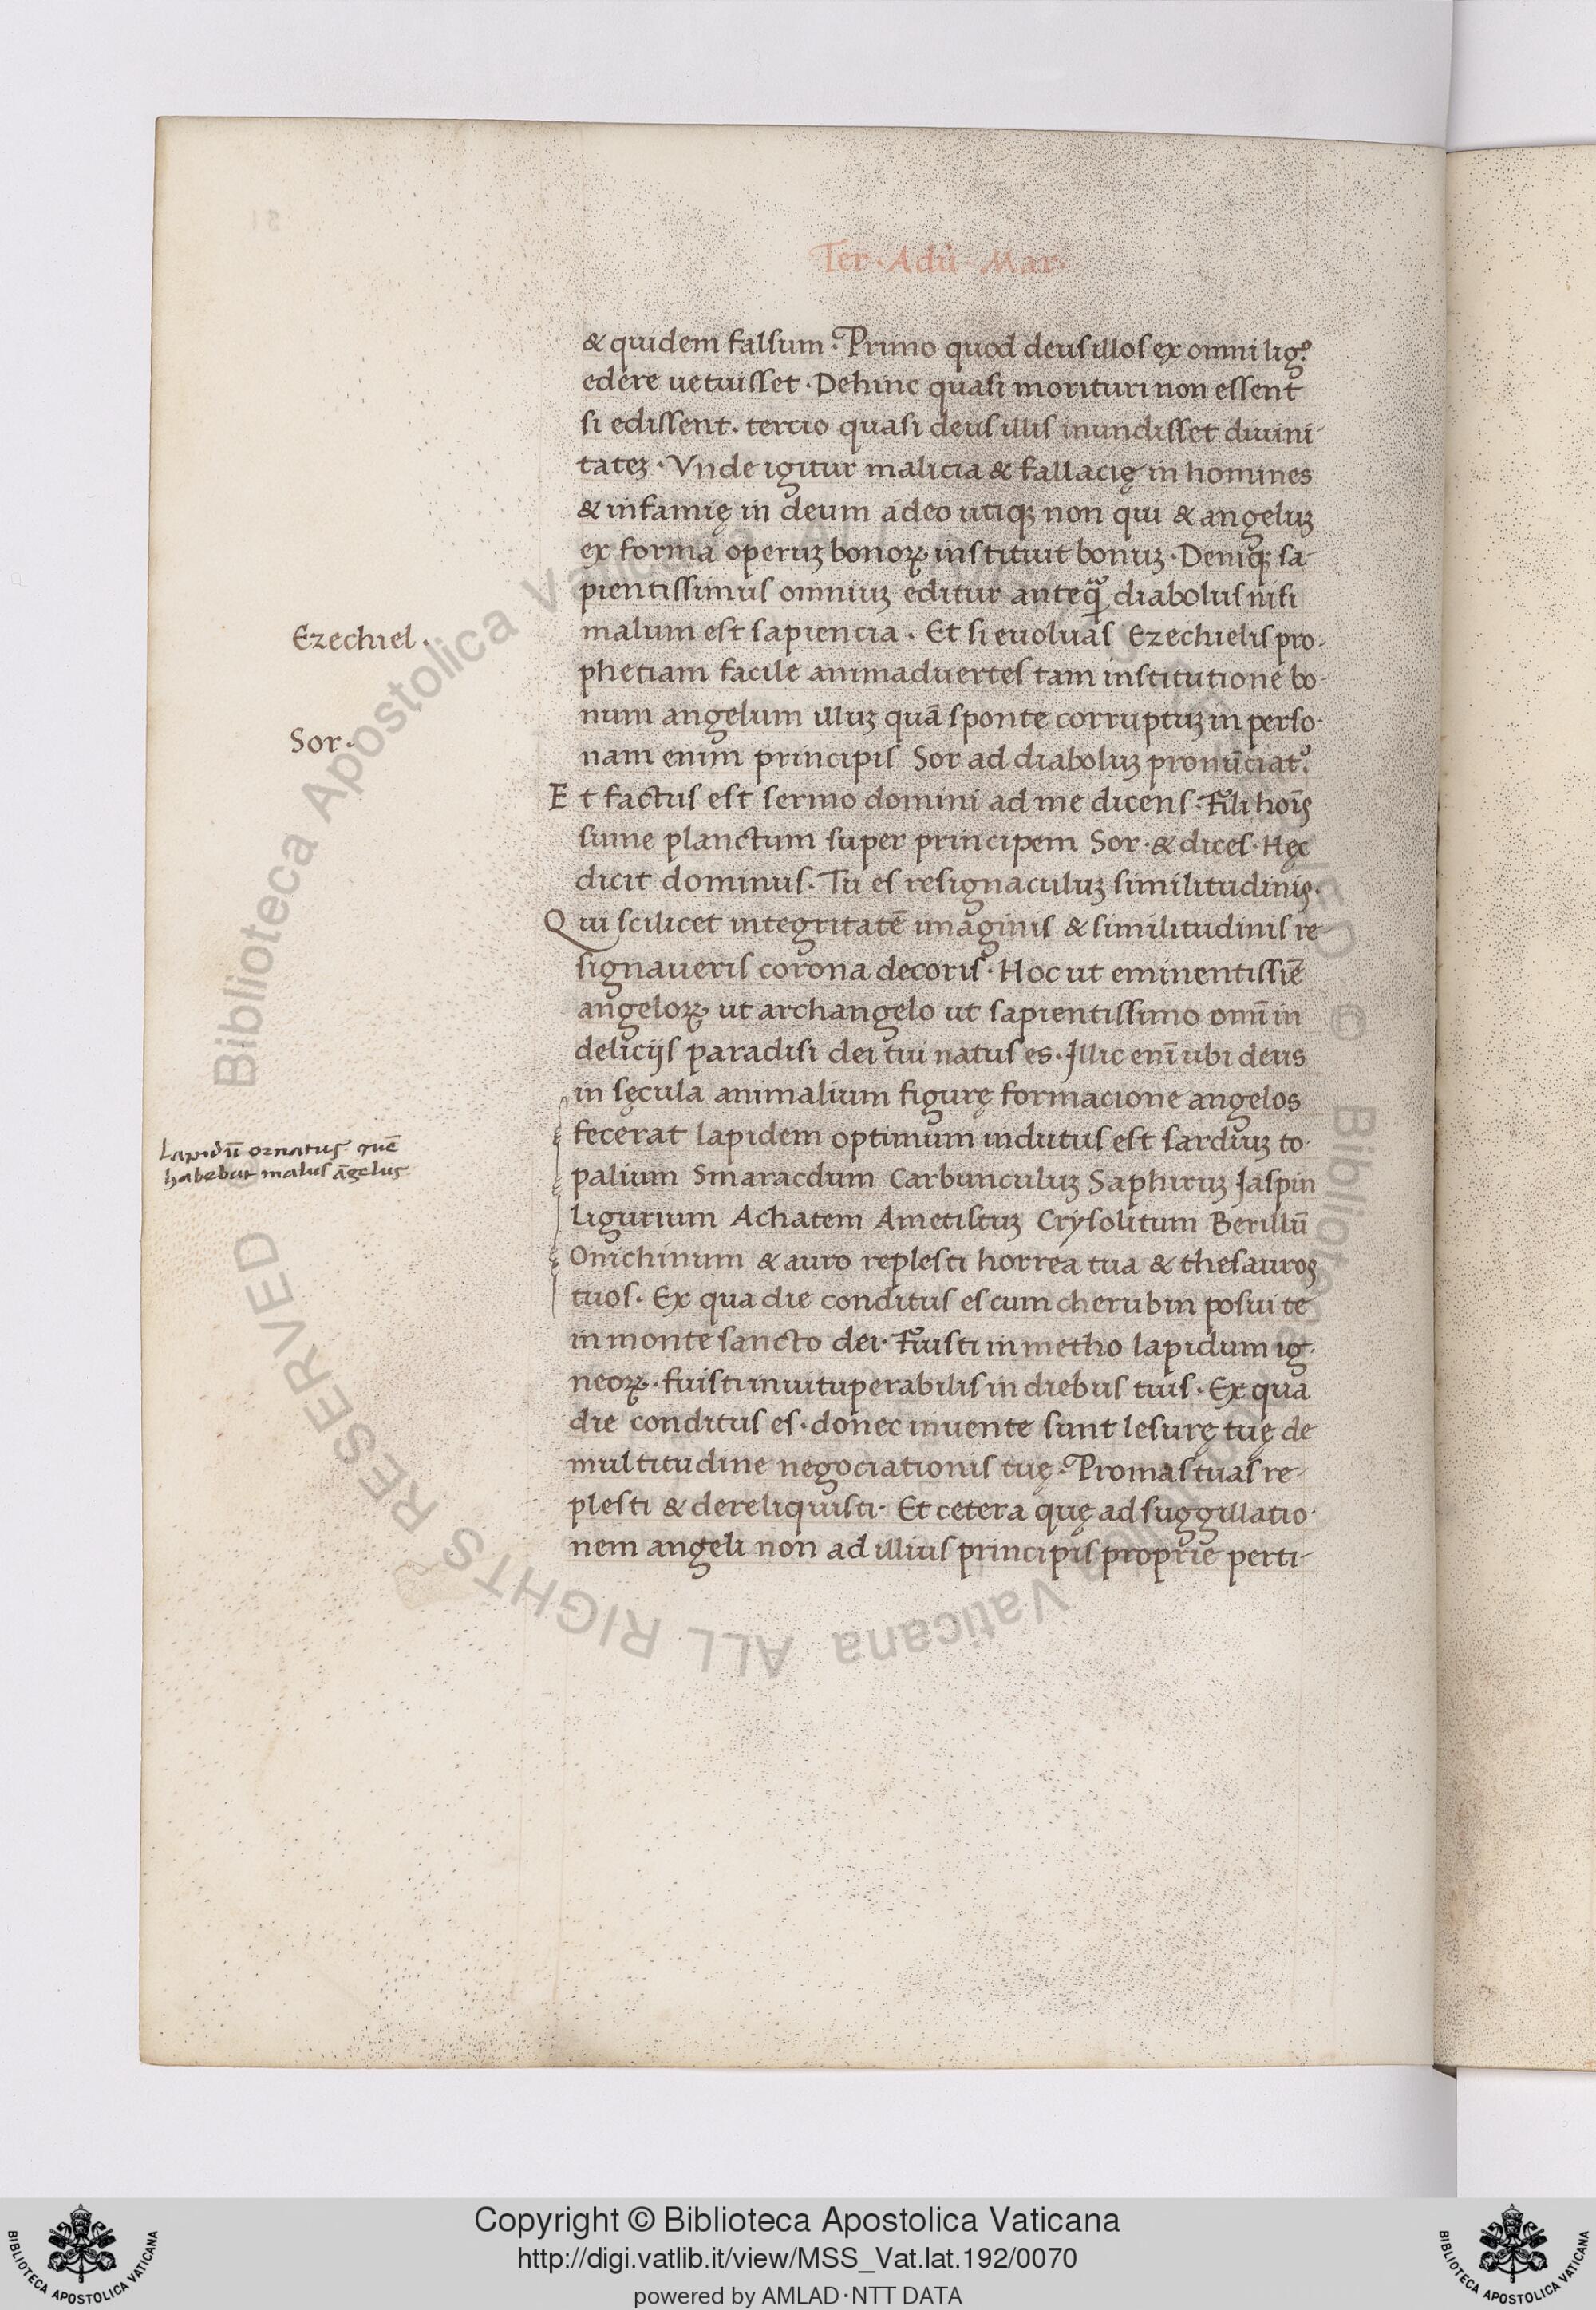 Ter · Adũ · Mar ·
& quidem falsum · Primo quod deus illos ex omni lig.º
edere uetuisset · Dehinc quasi morituri non essent
si edissent . tercio quasi deus illis inundisset diuini-
tateꝫ · Vnde igitur malicia & fallacię in homines
& infamię in deum adeo utiqꝫ non qui & angeluꝫ
ex forma operuꝫ bonoꝝ instituit bonuꝫ · Deniqꝫ sa-
pientissimus omniuꝫ editur anteq̃ diabolus nisi
Ezechiel ·
malum est sapiencia . Et si euoluas Ezechielis pro-
phetiam facile animaduertes tam institutione bo-
num angelum illuꝫ quã sponte corruptuꝫ in perso-
Sor ·
nam enim principis Sor ad diaboluꝫ pronũciat.ᷣ
Et factus est sermo domini ad me dicens · Fili hoĩs
sume planctum super principem Sor · & dices · Hęc
dicit dominus · Tu es resignaculuꝫ similitudinis .
Qui scilicet integritatẽ imaginis & similitudinis re-
signaueris corona decoris · Hoc ut eminentissiẽ
angeloꝝ ut archangelo ut sapientissimo omĩ in
delicijs paradisi dei tui natus es · Illic enĩ ubi deus
in sęcula animalium figurę formacione angelos
fecerat lapidem optimum indutus est sardiuꝫ to-
Lapidũ ornatus quẽ
habebat malus ãgelus
palium Smaracdum Carbunculuꝫ Saphiruꝫ Jaspin
Ligurium Achatem Ametistuꝫ Crysolitum Berillũ
Onichinum & auro replesti horrea tua & thesauros
tuos · Ex qua die conditus es cum cherubin posui te
in monte sancto dei · Fuisti in metho lapidum ig-
neoꝝ · fuisti inuituperabilis in diebus tuis · Ex qua
die conditus es · donec inuente sunt lesurę tuę de
multitudine negociationis tuę · Promas tuas re-
plesti & dereliquisti · Et cetera quę ad suggillatio-
nem angeli non ad illius principis proprie perti-
© Biblioteca Apostolica Vaticana ALL RIGHTS RESERVED
Copyright © Biblioteca Apostolica Vaticana
http://digi.vatlib.it/view/MSS_Vat.lat.192/0070
powered by AMLAD·NTT DATA
BIBLIOTECA APOSTOLICA VATICANA
BIBLIOTECA APOSTOLICA VATICANA